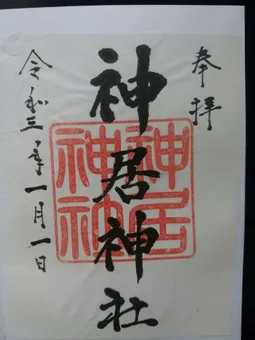 奉拝
神居神社
神居
神社
令和三年一月一日